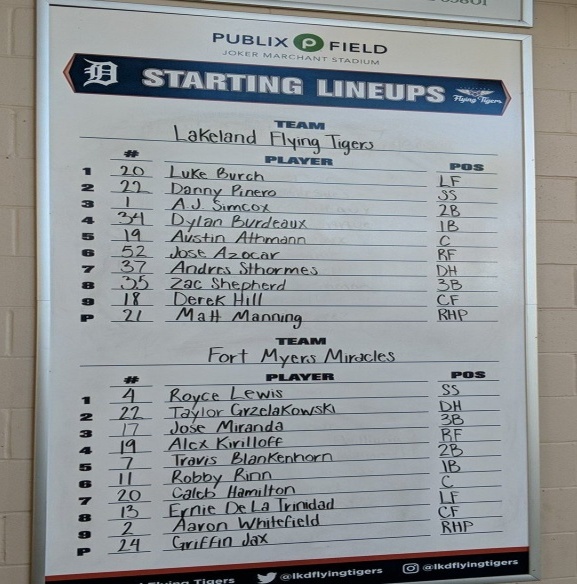 PUBLIX P FIELD
JOKER MARCHANT STADIUM
D STARTING LINEUPS Flying Tigers
TEAM
Lakeland Flying Tigers
# PLAYER POS
1 20 Luke Burch LF
2 22 Danny Pinero SS
3 1 A.J. Simcox 2B
4 34 Dylan Burdeaux 1B
5 19 Austin Athmann C
6 52 Jose Azocar RF
7 37 Andres Sthormes DH
8 35 Zac Shepherd 3B
9 18 Derek Hill CF
P 21 Matt Manning RHP
TEAM
Fort Myers Miracles
# PLAYER POS
1 4 Royce Lewis SS
2 22 Taylor Grzelakowski DH
3 17 Jose Miranda 3B
4 19 Alex Kirilloff RF
5 7 Travis Blankenhorn 2B
6 11 Robby Rinn 1B
7 20 Caleb Hamilton C
8 13 Ernie De La Trinidad LF
9 2 Aaron Whitefield CF
P 24 Griffin Jax RHP
Flying Tigers @lkdflyingtigers @lkdflyingtigers